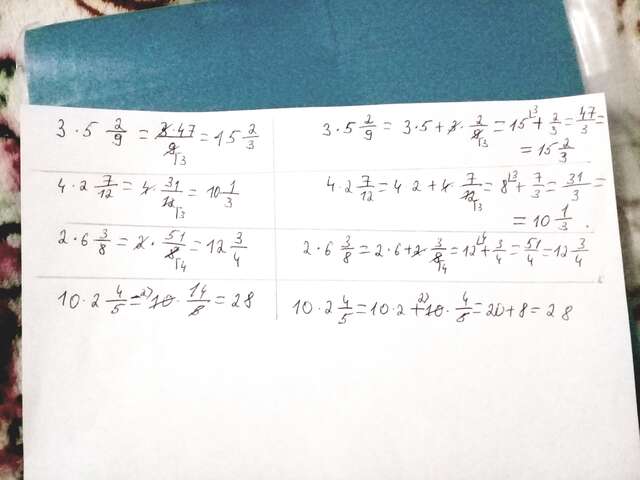 3 · 5 2/9 = 3·47/9 = 15 2/3
4 · 2 7/12 = 4 · 31/12 = 10 1/3
2 · 6 3/8 = 2 · 51/8 = 12 3/4
10 · 2 4/5 = 10 · 14/5 = 28
3 · 5 2/9 = 3·5 + 3 · 2/9 = 15 + 2/3 = 47/3 =
= 15 2/3
4 · 2 7/12 = 4 2 + 4 · 7/12 = 8 + 7/3 = 31/3 =
= 10 1/3.
2 · 6 3/8 = 2 · 6 + 2 · 3/8 = 12 + 3/4 = 51/4 = 12 3/4
10 · 2 4/5 = 10 · 2 + 10 · 4/5 = 20 + 8 = 28